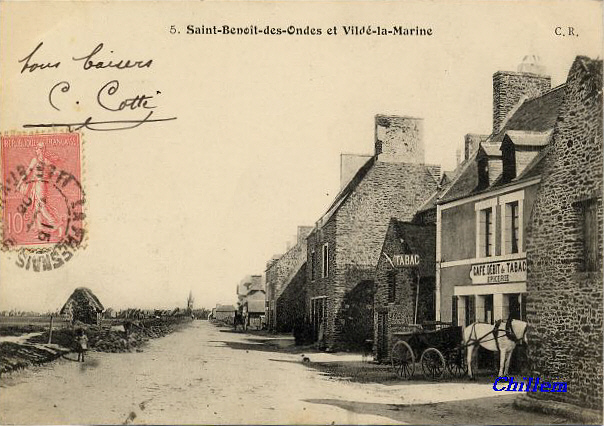 5. Saint-Benoît-des-Ondes et Vildé-la-Marine
C. R.
Bons baisers
C. Cotti
REPUBLIQUE FRANÇAISE
10
LA FRESNAIS
TABAC
CAFÉ DÉBIT de TABAC
EPICERIE
Chillem